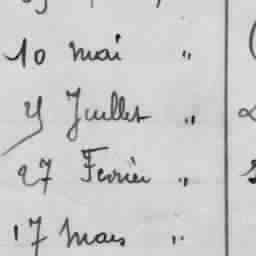 10 mai "
Juillet "
27 Fevrier "
17 mars "